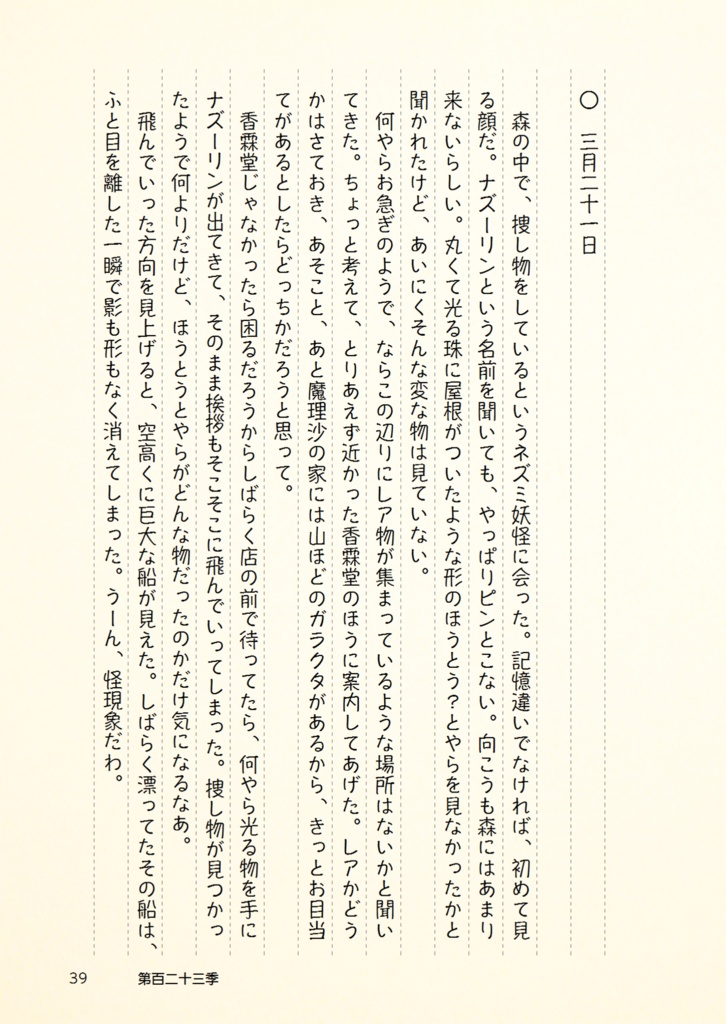 〇　三月二十一日
　森の中で、捜し物をしているというネズミ妖怪に会った。記憶違いでなければ、初めて見
る顔だ。ナズーリンという名前を聞いても、やっぱりピンとこない。向こうも森にはあまり
来ないらしい。丸くて光る珠に屋根がついたような形のほうとう？とやらを見なかったかと
聞かれたけど、あいにくそんな変な物は見ていない。
　何やらお急ぎのようで、ならこの辺りにレア物が集まっているような場所はないかと聞い
てきた。ちょっと考えて、とりあえず近かった香霖堂のほうに案内してあげた。レアかどう
かはさておき、あそこと、あと魔理沙の家には山ほどのガラクタがあるから、きっとお目当
てがあるとしたらどっちかだろうと思って。
　香霖堂じゃなかったら困るだろうからしばらく店の前で待ってたら、何やら光る物を手に
ナズーリンが出てきて、そのまま挨拶もそこそこに飛んでいってしまった。捜し物が見つかっ
たようで何よりだけど、ほうとうとやらがどんな物だったのかだけ気になるなあ。
　飛んでいった方向を見上げると、空高くに巨大な船が見えた。しばらく漂ってたその船は、
ふと目を離した一瞬で影も形もなく消えてしまった。うーん、怪現象だわ。
39
第百二十三季